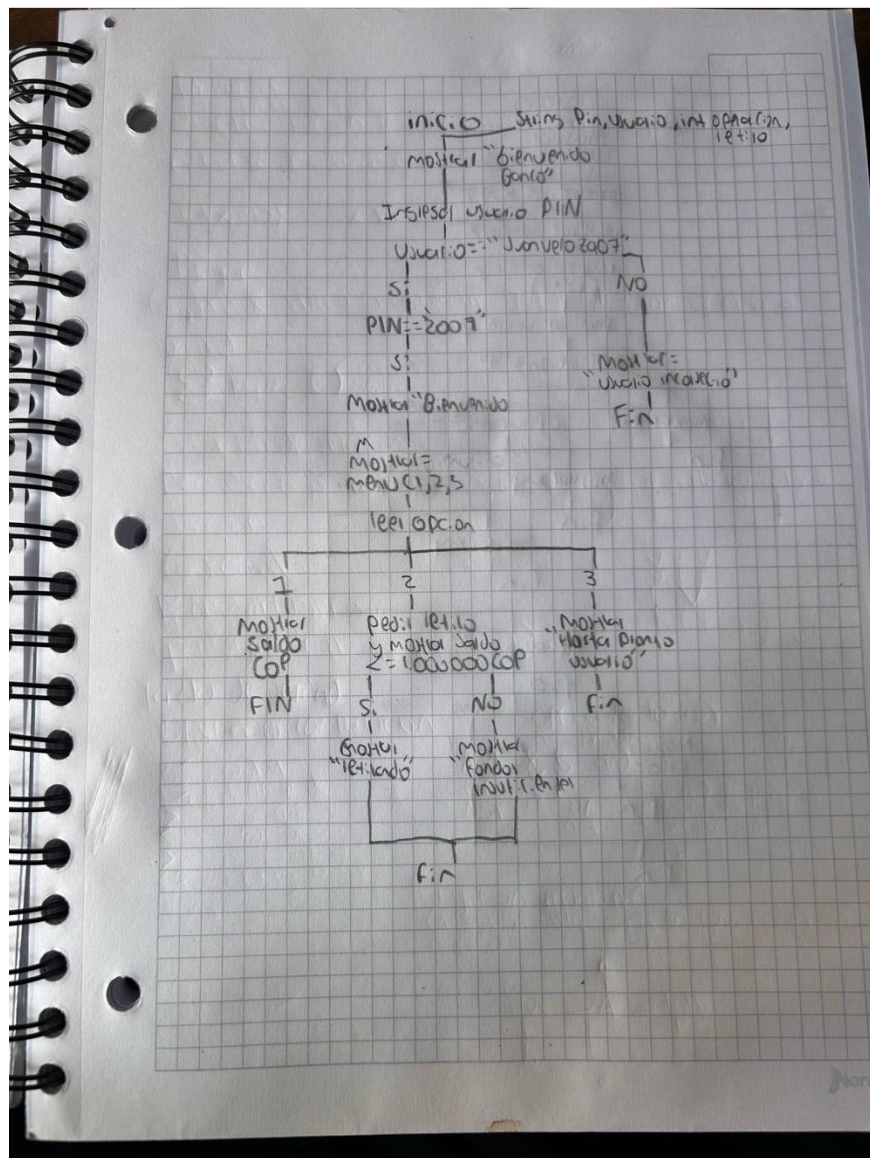 inicio String Pin, usuario, int operacion,
retiro
mostrar "bienvenido
Banco"
Ingresar usuario PIN
Usuario=="Juanvelo2007"
Si NO
PIN=="2007"
Si
Mostrar=
"usuario incorrecto"
Mostrar "Bienvenido
Fin
M
Mostrar=
menu (1,2,3
leer opcion
1 2 3
Mostrar
Saldo
COP
FIN
Pedir retiro
y mostrar saldo
<=1.000.000COP
Si NO
Mostrar
"retirado"
Mostrar
"fondos
insuficientes
"Mostrar
Hasta Pronto
usuario"
Fin
Fin